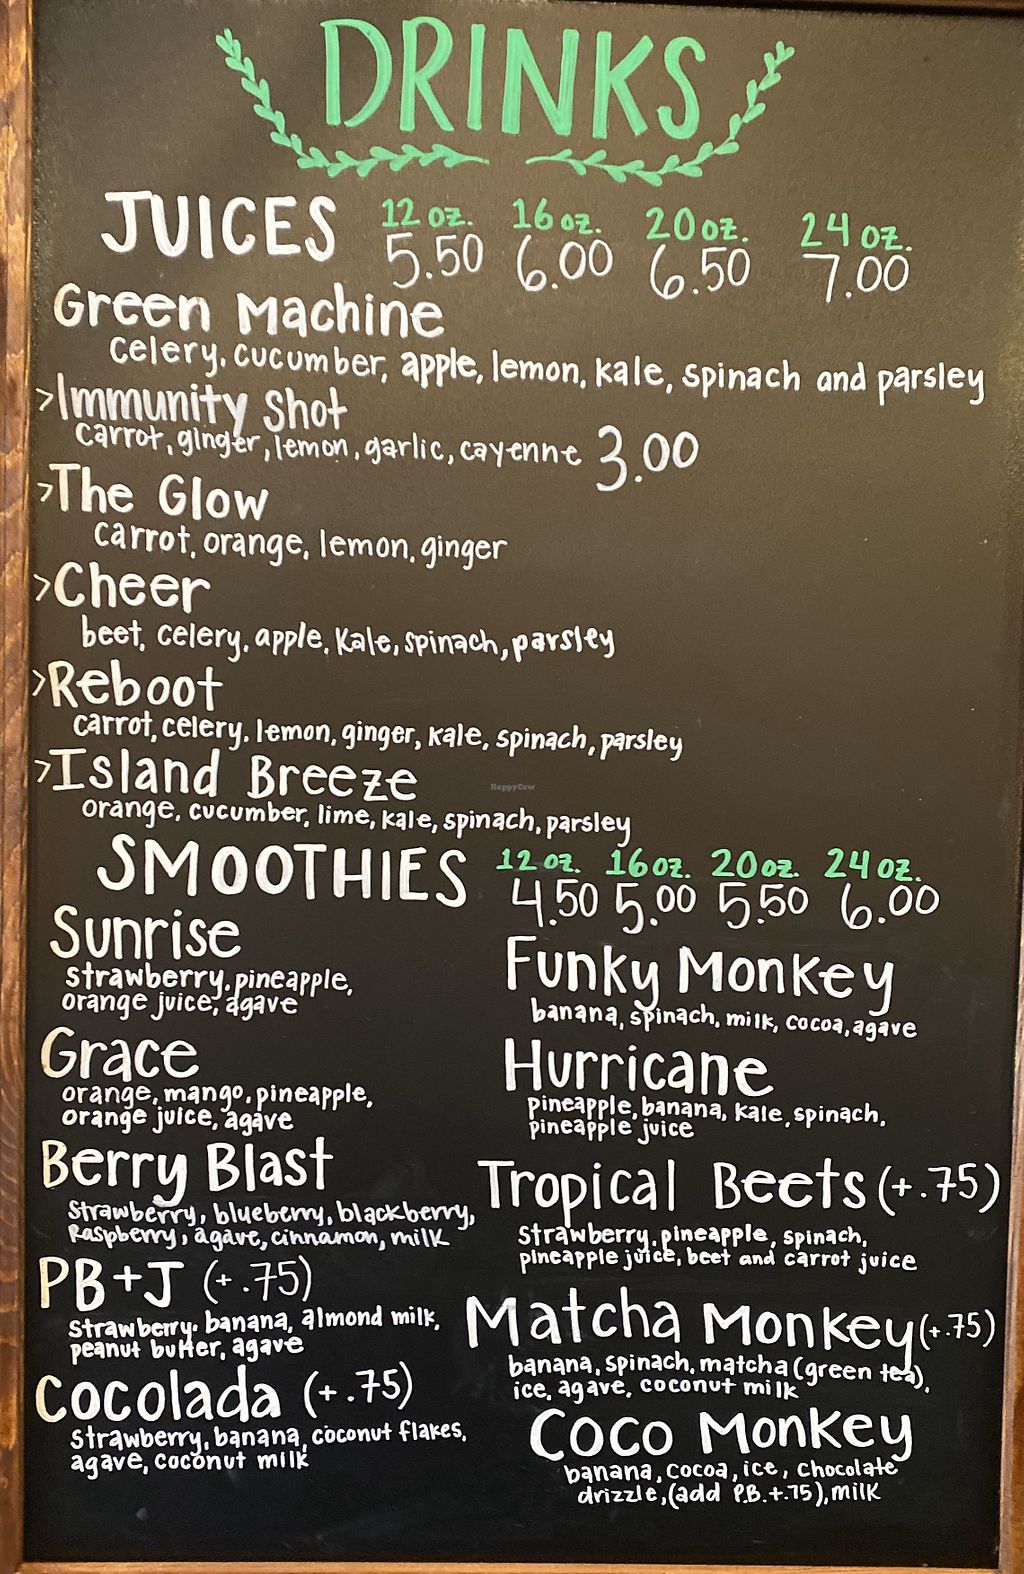 DRINKS
JUICES 12 oz. 16 oz. 20 oz. 24 oz.
5.50 6.00 6.50 7.00
Green Machine
celery, cucumber, apple, lemon, kale, spinach and parsley
>Immunity Shot
carrot, ginger, lemon, garlic, cayenne 3.00
>The Glow
carrot, orange, lemon, ginger
>Cheer
beet, celery, apple, kale, spinach, parsley
>Reboot
carrot, celery, lemon, ginger, kale, spinach, parsley
>Island Breeze
orange, cucumber, lime, kale, spinach, parsley
SMOOTHIES 12 oz. 16 oz. 20 oz. 24 oz.
4.50 5.00 5.50 6.00
Sunrise
strawberry, pineapple,
orange juice, agave
Grace
orange, mango, pineapple,
orange juice, agave
Berry Blast
Strawberry, blueberry, blackberry,
Raspberry, agave, cinnamon, milk
PB+J (+.75)
Strawberry, banana, almond milk,
peanut butter, agave
Cocolada (+.75)
strawberry, banana, coconut flakes,
agave, coconut milk
Funky Monkey
banana, spinach, milk, cocoa, agave
Hurricane
pineapple, banana, kale, spinach,
pineapple juice
Tropical Beets (+.75)
strawberry, pineapple, spinach,
pineapple juice, beet and carrot juice
Matcha Monkey (+.75)
banana, spinach, matcha (green tea),
ice, agave, coconut milk
Coco Monkey
banana, cocoa, ice, chocolate
drizzle, (add P.B.+.75), milk
HappyCow